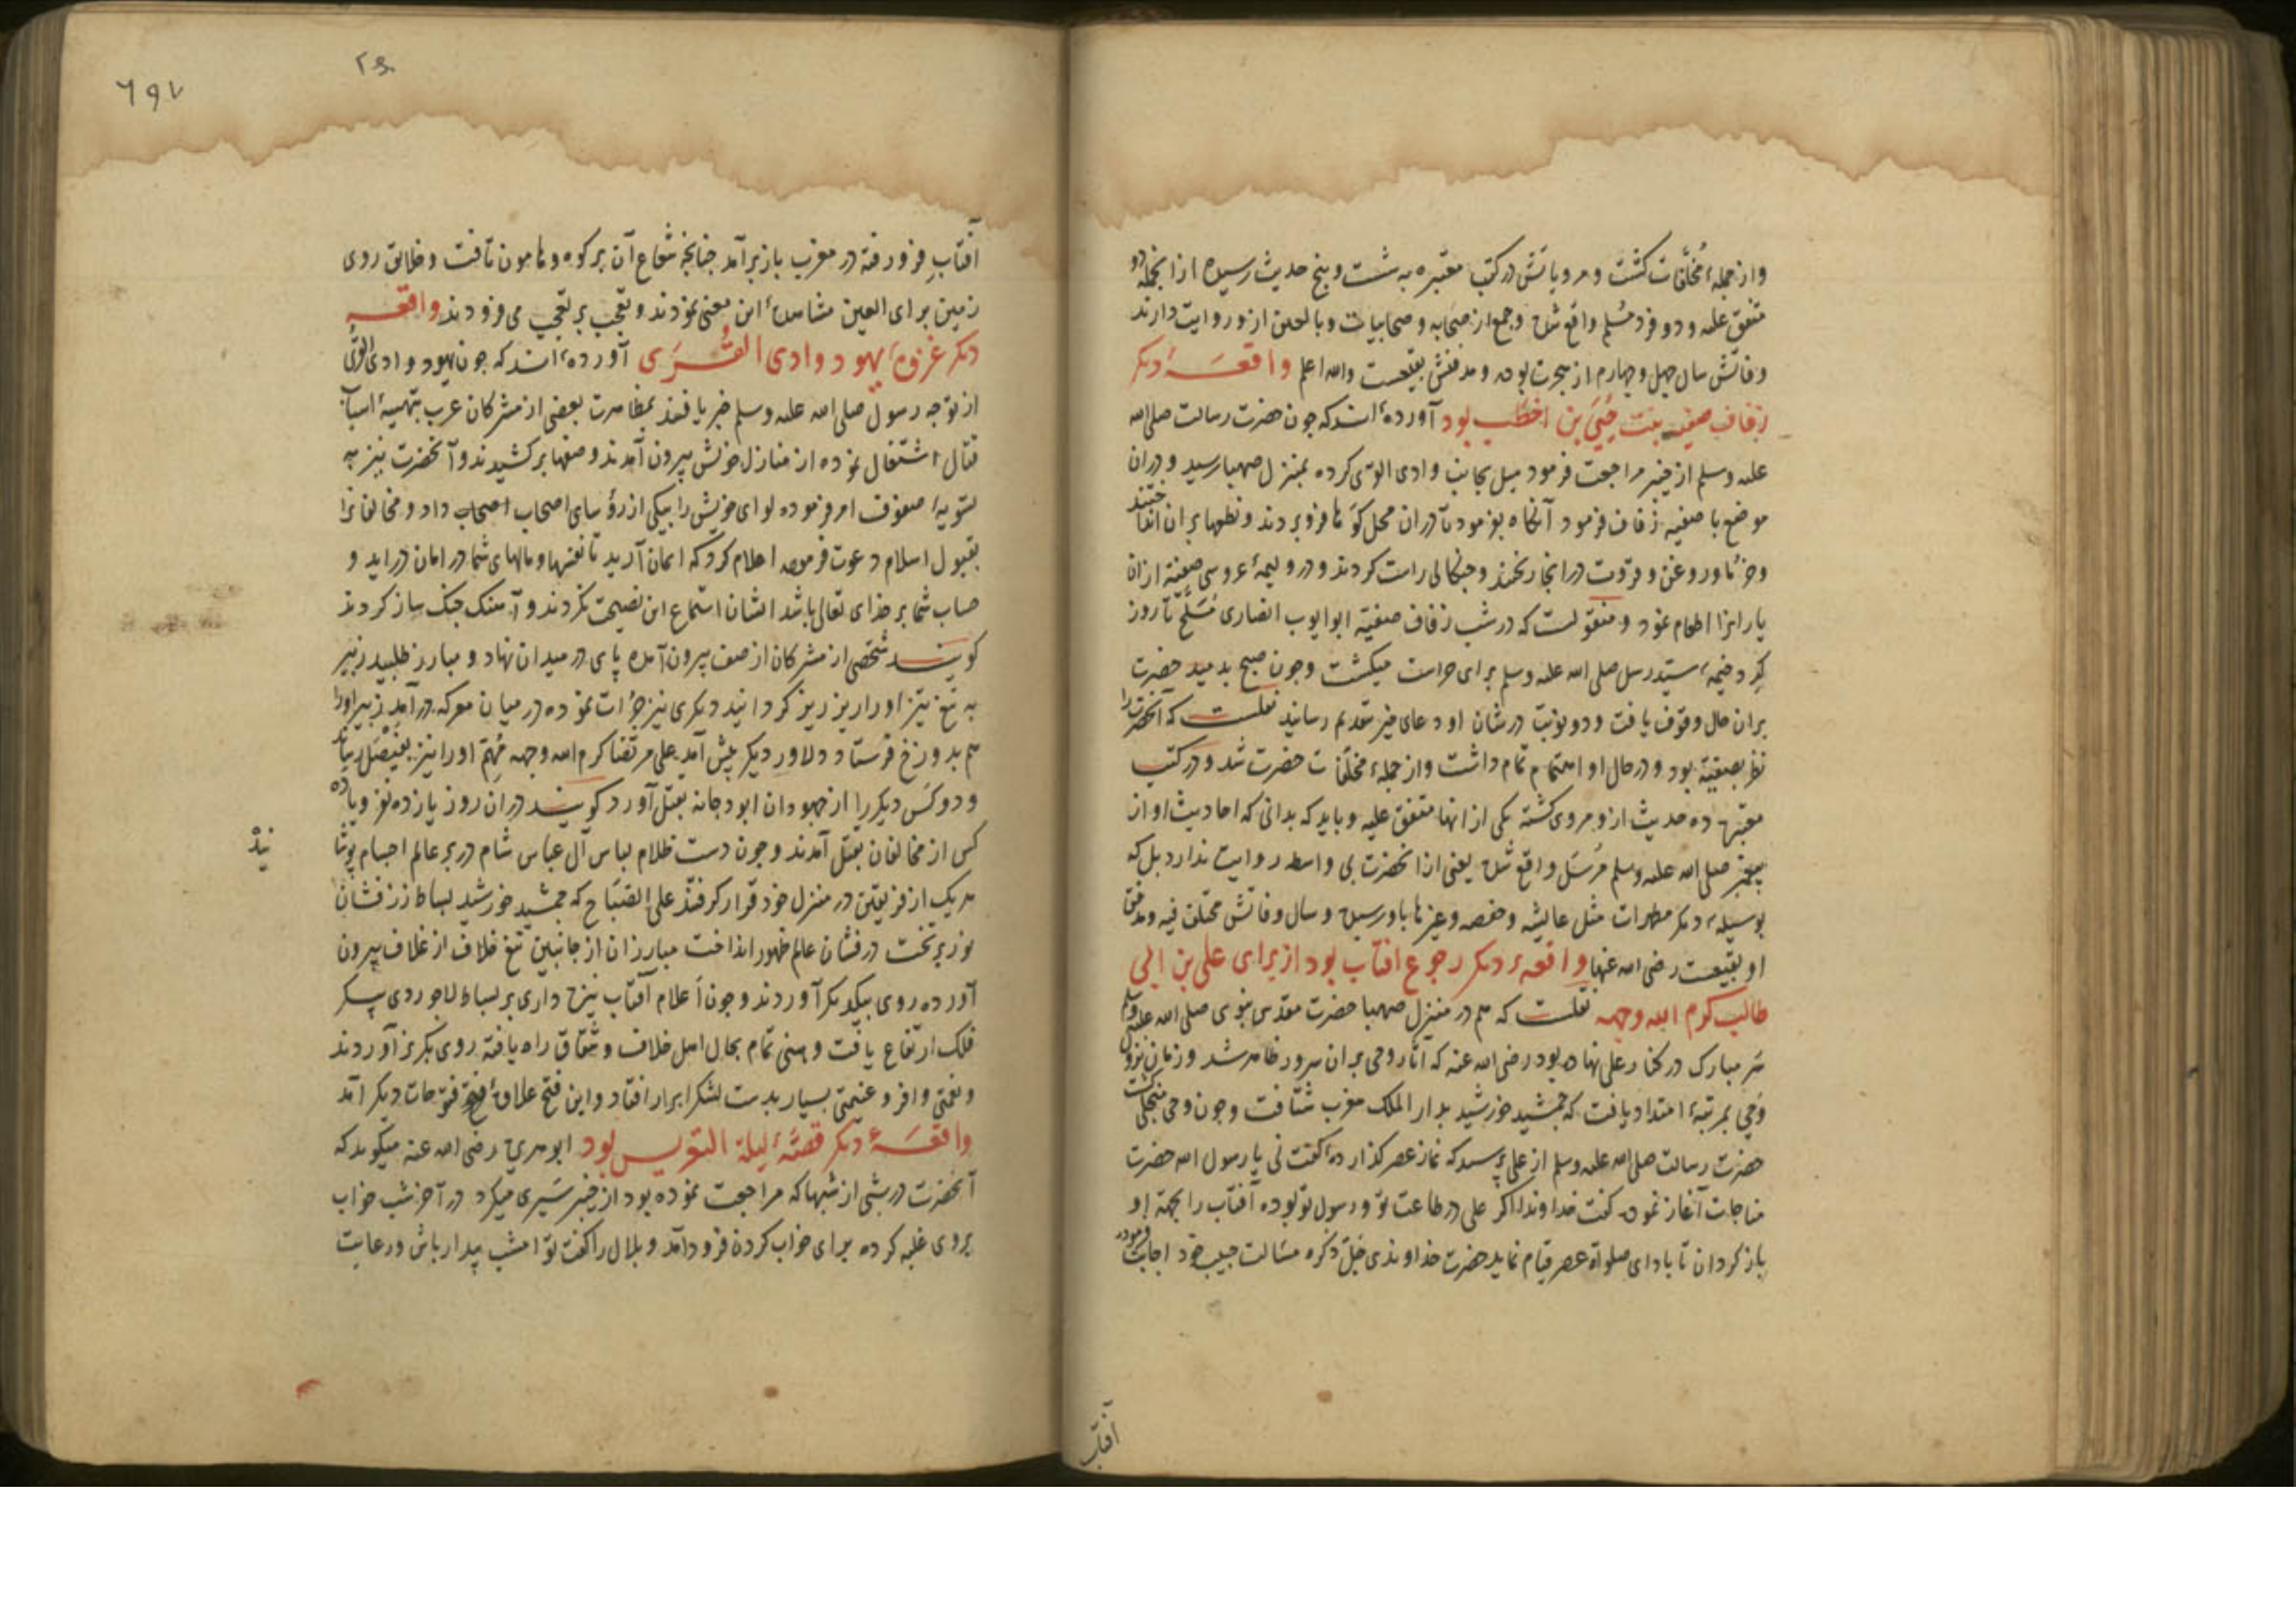 واز جمله مخلّفات کشت ومرویاتش در کتب معتبره به شست وپنج حدیث رسیده ازانجمله دو
متفق علیه ودو فرد مسلم واقع شده وجمع از صحابه وصحابیات وتابعین ازو روایت دارند
وفاتش سال چهل وچهارم از هجرت بوده ومدفنش بقیعست والله اعلم واقعهٔ دیکر
زفاف صفیه بنت حُیَیّ بن اخطب بود آورده‌اند که چون حضرت رسالت صلی الله
علیه وسلم از خیبر مراجعت فرمود میل بجانب وادی القری کرده بمنزل صهبا رسید ودران
موضع با صفیه زفاف فرمود آنکاه بفرمود تا دران محل کوها فرو بردند ونطعها بران انداختند
وخرما وروغن وقروت در انجا ریختند وچنکالی راست کردند ودر ولیمهٔ عروسی صفیّه ازان
یارانرا اطعام نمود ومنقولست که در شب زفاف صفیّه ابو ایوب انصاری مُسَلَّح تا روز
کِرد خیمهٔ سیّد رسل صلی الله علیه وسلم برای حراست میکشت وچون صبح بدمید حضرت
بران حال وقوف یافت ودو نوبت در شان او دعای خیر بتقدیم رسانید نقلست که آنحضرت را
نظر بصفیّه بود ودر حال او اهتمام تمام داشت واز جمله مخلّفات حضرت شد ودر کتب
معتبره ده حدیث ازو مروی کشته یکی ازانها متفق علیه وباید که بدانی که احادیث او از
پیغمبر صلی الله علیه وسلم مُرسَل واقع شده یعنی از انحضرت بی واسطه روایت ندارد بل که
بوسیلهٔ دیکر مطهرات مثل عایشه وحفصه وغیرها باو رسیده وسال وفاتش مختلف فیه ومدفن
او بقیعست رضی الله عنها واقعهٔ دیکر رجوع افتاب بود از برای علی بن ابی
طالب کرم الله وجهه نقلست که هم در منزل صهبا حضرت مقدس نبوی صلی الله علیه وسلم
سَر مبارک در کنار علی نهاده بود رضی الله عنه که آثار وحی بران سرور ظاهر شد وزمان نزول
وَحی بمرتبهٔ امتداد یافت که جمشید خورشید بدار الملک مغرب شتافت وچون وحی منجلی کشت
حضرت رسالت صلی الله علیه وسلم از علی پرسید که نماز عصر کذارده کفت نی یا رسول الله حضرت
مناجات آغاز نموده کفت خداوندا اکر علی در طاعت تو ورسول تو بوده آفتاب را بجهة او
باز کردان تا بادای صلوة عصر قیام نماید حضرت خداوندی جَلّ ذکره مسالت حبیب خود اجابت فرموده
آفتاب
۶۹۷
آفتابِ فرو رفته در مغرب باز برآمد چنانچه شعاع آن بر کوه وهامون تافت وخلایق روی
زمین برای العین مشاهدهٔ این معنی نمودند وتعجب بر تعجب می فزودند واقعهٔ
دیکر غزوهٔ یهود وادی القُرَی آورده‌اند که چون یهود وادی القُری
از توجه رسول صلی الله علیه وسلم خبر یافتند بمظاهرت بعضی از مشرکان عرب بتهیهٔ اسباب
قتال اشتغال نموده از منازل خویش بیرون آمدند وصفها برکشیدند وآنحضرت نیز به
تسویهٔ صفوف امر فرموده لوای خویش را بیکی از رؤسای اصحاب اصحاب داد ومخالفانرا
بقبول اسلام دعوت فرموده اعلام کرد که ایمان آرید تا نفسها ومالهای شما در امان دراید و
حساب شما بر خدای تعالی باشد ایشان استماع این نصیحت نکردند وآهنک جنک ساز کردند
کویند شخصی از مشرکان از صف بیرون آمده پای در میدان نهاد ومبارز طلبید زبیر
به تیغ تیز او را ریز ریز کردانید دیکری نیز جرأت نموده در میان معرکه درآمد زبیر او را
هم بدوزخ فرستاد دلاور دیکر پیش آمد علی مرتضا کرم الله وجهه مُهِمّ او را نیز بفیصَل رسانید
ودو کَس دیکر را از جهودان ابو دجانه بقتل آورد کویند دران روز یازده نفر ویا ده
کس از مخالفان بقتل آمدند وچون دست ظلام لباس آل عباس شام در بر عالم اجسام پوشا
نید
هر یک از فریقین در منزل خود قرار کرفتند علی الصّبَاح که جمشید خورشید بساط زر فشان
نور بر تخت درفشان عالم ظهور انداخت مبارزان از جانبین تیغ خلاف از غلاف بیرون
آورده روی بیکدیکر آوردند وچون اَعلام آفتاب نیزه داری بر بساط لاجوردی پیکر
فلک ارتفاع یافت وهنی تمام بحال اهل خلاف وشقاق راه یافته روی بکریز آوردند
ونعمتی وافر وغنیمتی بسیار بدست لشکر ابرار افتاد واین فتح علاوهٔ فتح فتوحات دیکر آمد
واقعهٔ دیکر قصّهٔ لیلة التعریس بود ابو هریره رضی الله عنه میکوید که
آنحضرت در شبی از شبها که مراجعت نموده بود از خیبر سَیری میکرد در آخر شب خواب
بروی غلبه کرده برای خواب کردن فرود آمد وبلال را کفت تو امشب بیدار باش ورعایت